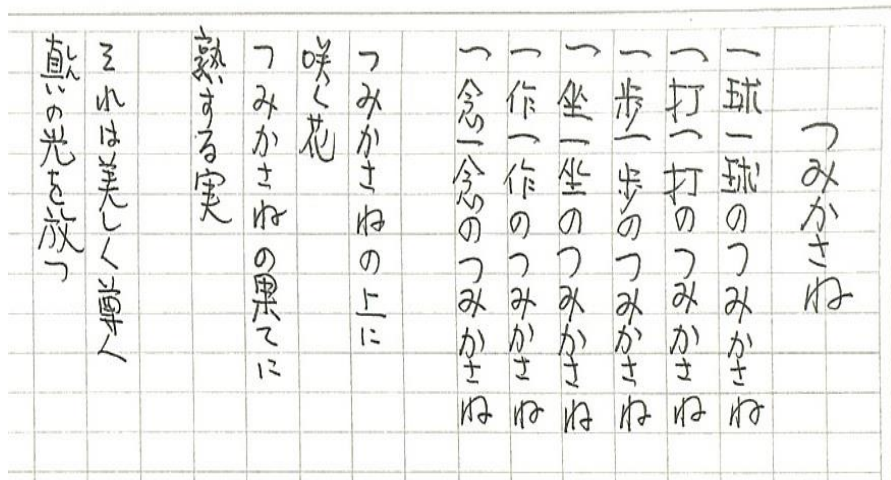 つみかさね
一球一球のつみかさね
一打一打のつみかさね
一歩一歩のつみかさね
一坐一坐のつみかさね
一作一作のつみかさね
一念一念のつみかさね
つみかさねの上に
咲く花
つみかさねの果てに
熟する実
それは美しく尊く
真の光を放つ